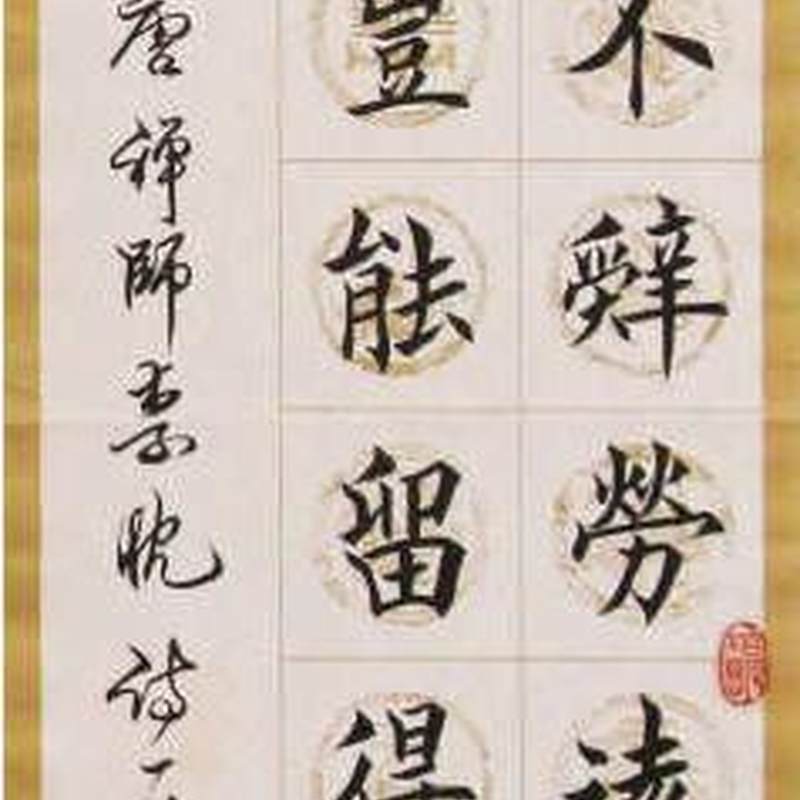 不辭勞遠
豈能留得
唐禪師李忱詩一